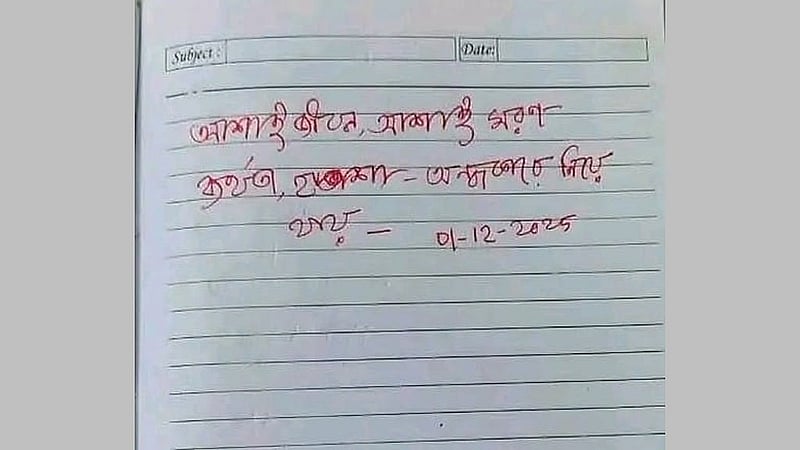 Subject :
Date:
আশাই জীবন, আশাই মরণ
ব্যর্থতা, হতাশা - অন্ধকারে নিয়ে
যায় —
01-12-2025